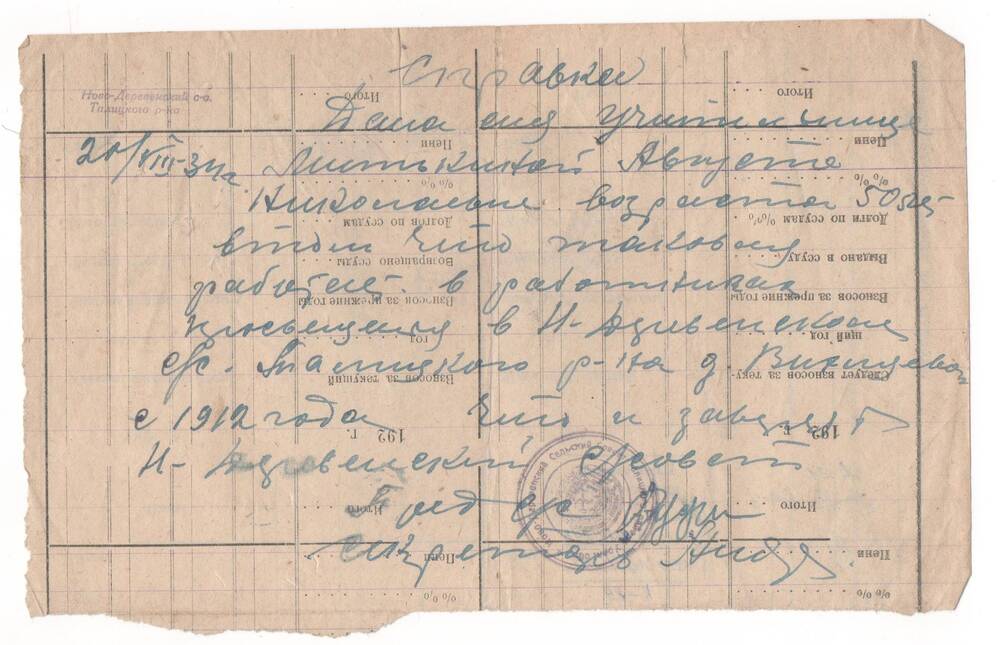 Справка
Ново-Деревенский с-с.
Талицкого р-на
Дана сия учительнице
20/VIII-34 г. Августе
Николаевне возраста 50 лет
в том что таковая
работает в работниках
просвещения в Н-Деревенском
с/с. Талицкого р-на д.
с 1912 года что и заверяет
Н-Деревенский с/совет
Пред с/с
Секретарь
Итого
Итого
Пени
Пени
% %
% %
Долги по ссудам
Долгов по ссудам
Выдано в ссуду
Возвращено ссуды
Взносов за прежние годы
Взносов за прежние годы
щий год
год
Следует взносов за теку-
Взносов за текущий
192 г.
192 г.
Итого
Итого
Пени
Пени
% %
% %